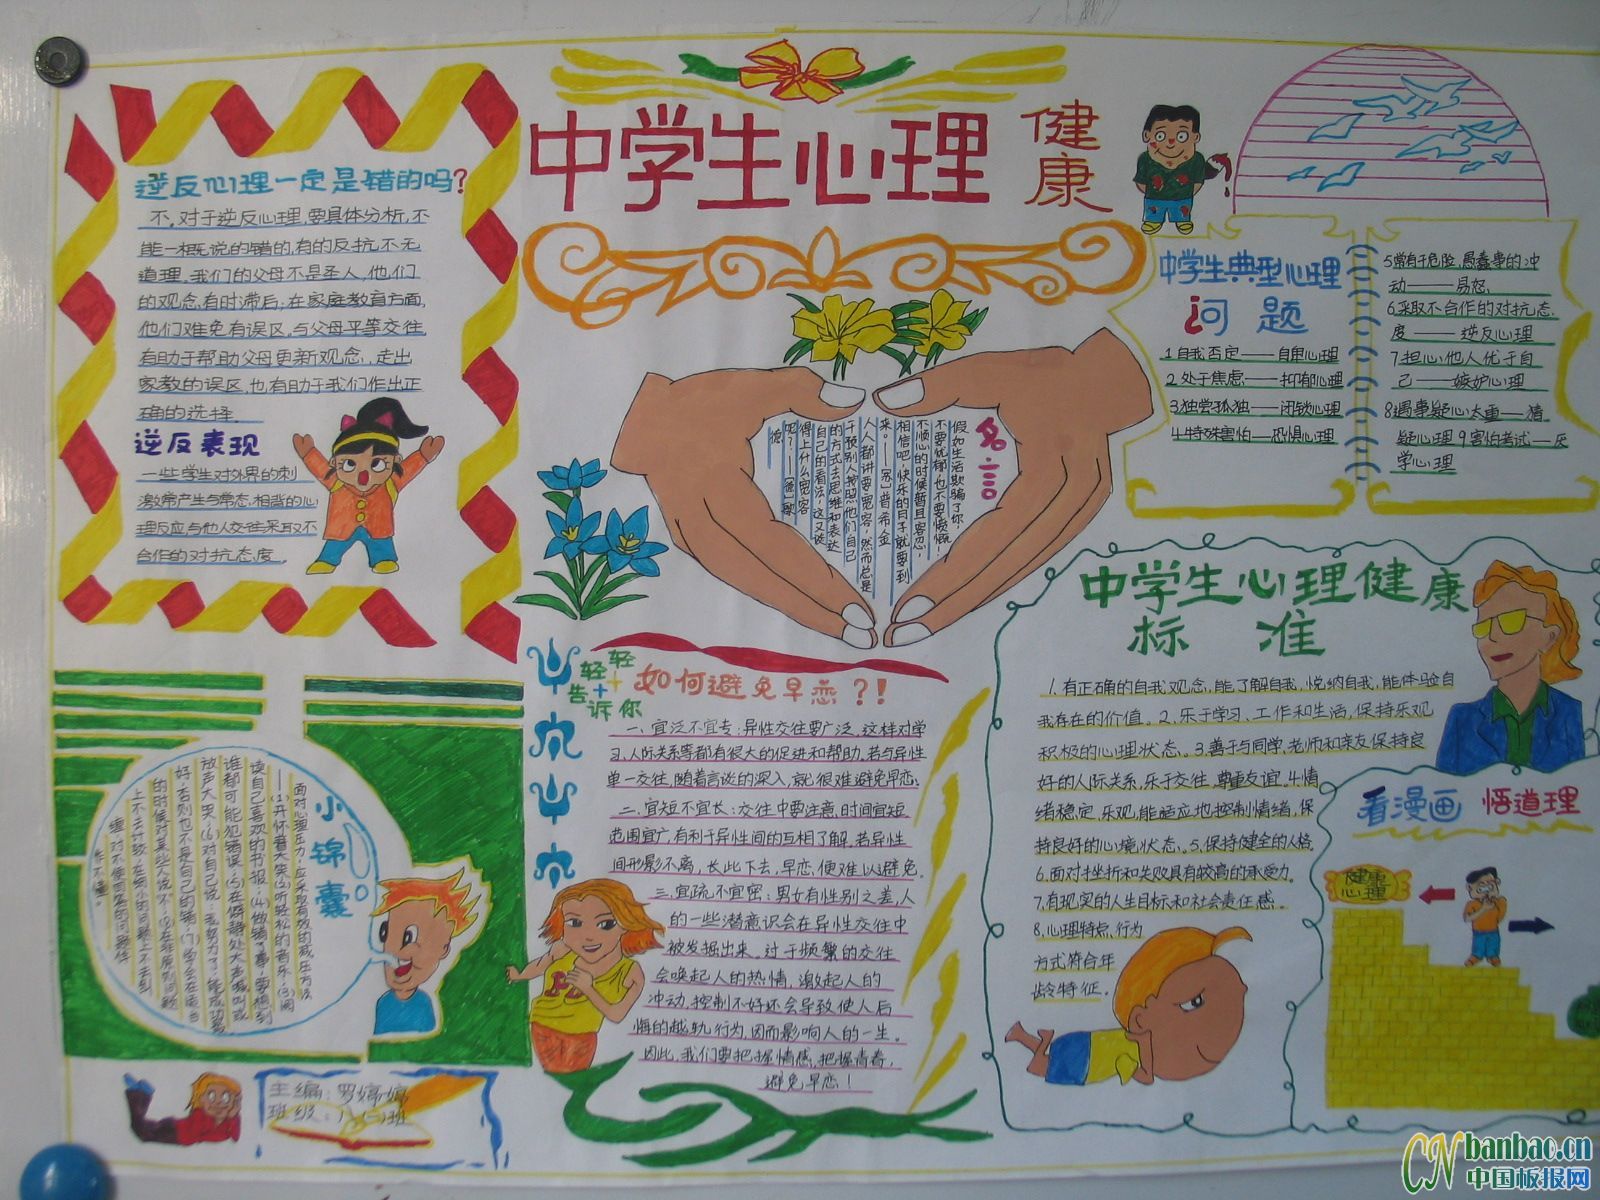 中学生心理
健康
逆反心理一定是错的吗?
不,对于逆反心理,要具体分析,不
能一概说的错的,有的反抗不无
道理,我们的父母不是圣人,他们
的观念,有时滞后,在家庭教育方面,
他们难免有误区。与父母平等交往
有助于帮助父母更新观念,走出
家教的误区,也有助于我们作出正
确的选择。
逆反表现
一些学生对外界的刺
激常产生与常态相背的心
理反应与他人交往采取不
合作的对抗态度。
名言
假如生活欺骗了你,
不要忧郁,也不要愤慨!
不顺心的时候暂且容忍,
相信吧,快乐的日子就要到
来。——[苏]普希金
人人都讲要宽容,然而总是
干预别人按照他们自己
的方式去思维和表达
自己的看法,这又谈
得上什么宽容
呢?——[德]歌
德
中学生典型心理
问题
1自我否定——自卑心理
2处于焦虑——抑郁心理
3独尝孤独——闭锁心理
4特殊害怕——恐惧心理
5常有于危险,愚蠢事的冲
动——易怒
6采取不合作的对抗态
度——逆反心理
7担心他人优于自
己——嫉妒心理
8遇事疑心太重——猜
疑心理9害怕考试——厌
学心理
轻轻
告诉你
如何避免早恋?!
一、宜泛不宜专:异性交往要广泛,这样对学
习、人际关系等都有很大的促进和帮助。若与异性
单一交往,随着言谈的深入,就很难避免早恋。
二、宜短不宜长:交往中要注意,时间宜短
范围宜广,有利于异性间的互相了解。若异性
间形影不离,长此下去,早恋便难以避免。
三、宜疏不宜密:男女有性别之差,人
的一些潜意识会在异性交往中
被发掘出来。过于频繁的交往
会唤起人的热情,激起人的
冲动,控制不好还会导致使人后
悔的越轨行为,因而影响人的一生。
因此,我们要把握情感,把握青春,
避免早恋!
中学生心理健康
标准
1.有正确的自我观念,能了解自我,悦纳自我,能体验自
我存在的价值。2.乐于学习、工作和生活,保持乐观
积极的心理状态。3.善于与同学、老师和亲友保持良
好的人际关系,乐于交往,尊重友谊。4.情
绪稳定,乐观,能适应地控制情绪,保
持良好的心境状态。5.保持健全的人格
6.面对挫折和失败具有较高的承受力。
7.有现实的人生目标和社会责任感。
8.心理特点,行为
方式符合年
龄特征。
看漫画 悟道理
健康
心理
小锦囊
面对心理压力,应采取有效的减压方法
——(1)开怀者大笑;(2)听轻松的音乐;(3)阅
读自己喜欢的书报;(4)做错了事,要想到
谁都可能犯错误;(5)在僻静处大声喊叫或
放声大哭;(6)对自己说:
好,否则也不是自己的错;(7)学会在适当
的时候对某些人说“不”;(8)在非原则问题
上不去计较,在细小的问题上不去纠
缠,对不便回答的问题佯
作不懂。
主编:罗婷婷
班级:
CN banbao.cn
中国板报网